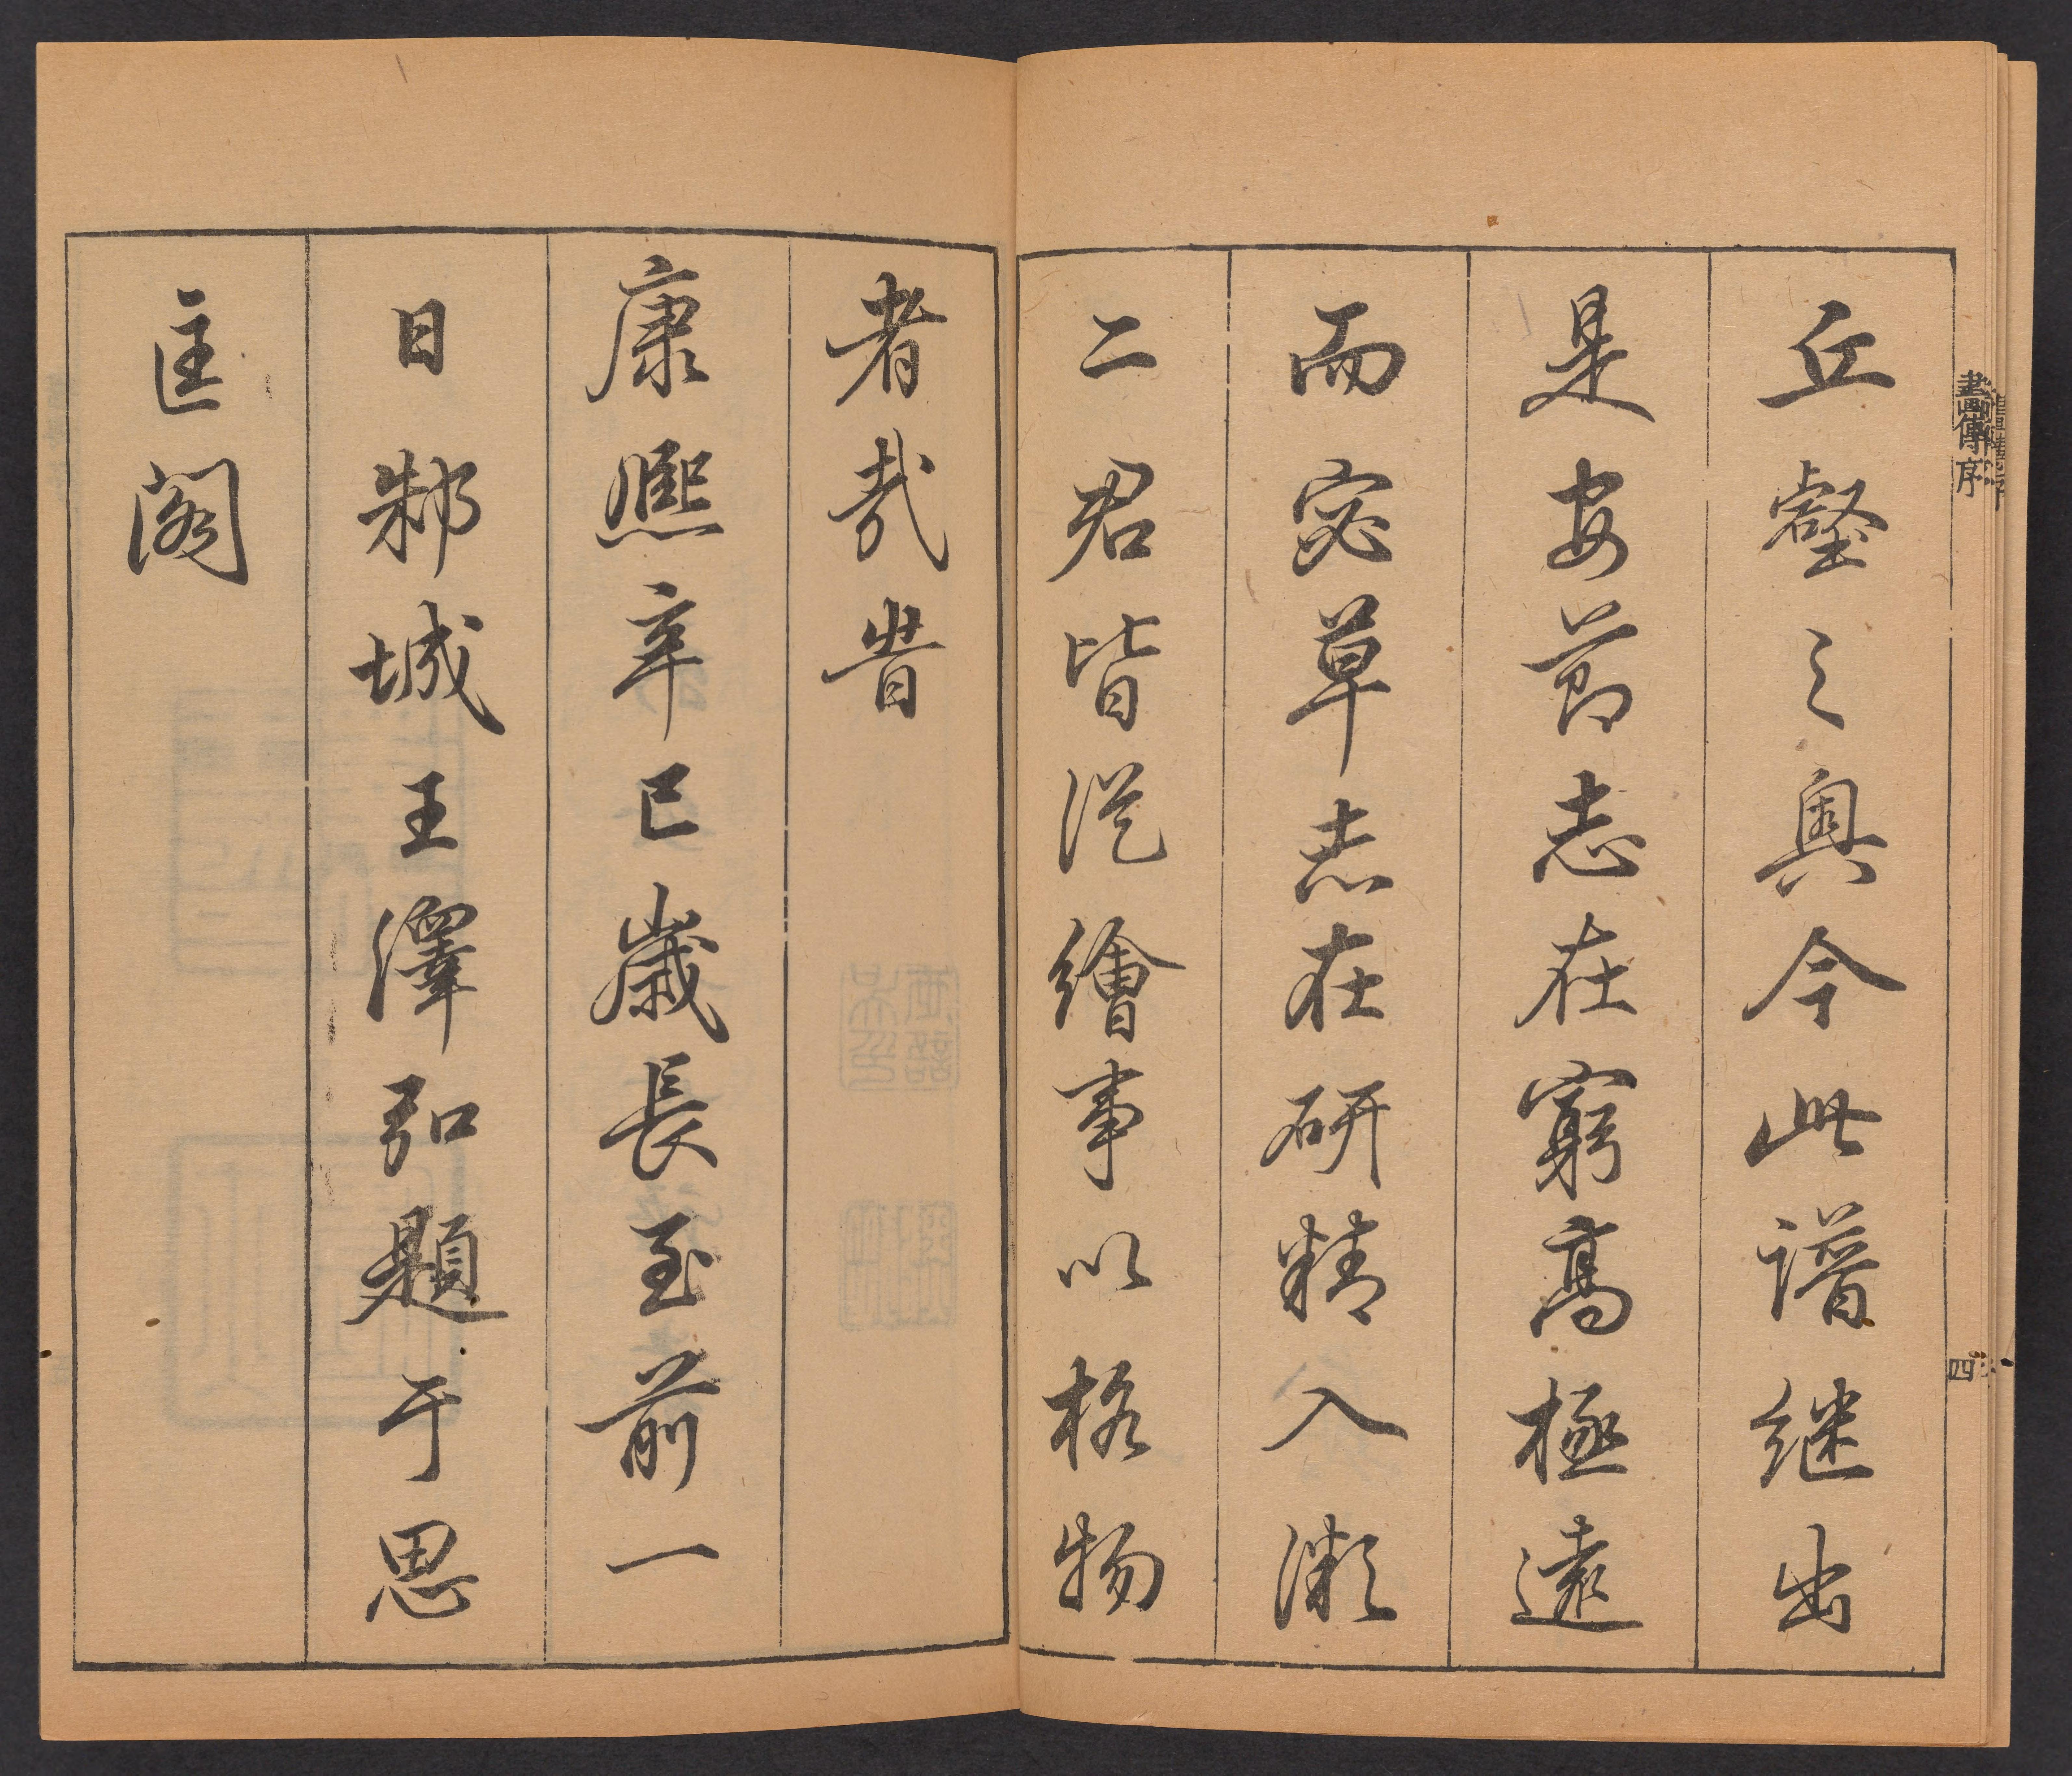 畫傳序
四
丘壑之奧今此譜継出
是安節志在窮髙極遠
而宓草志在研精入微
二君皆從繪事以格物
者哉旹
康熙辛巳歲長至前一
日邾城王澤弘題于思
匡閣